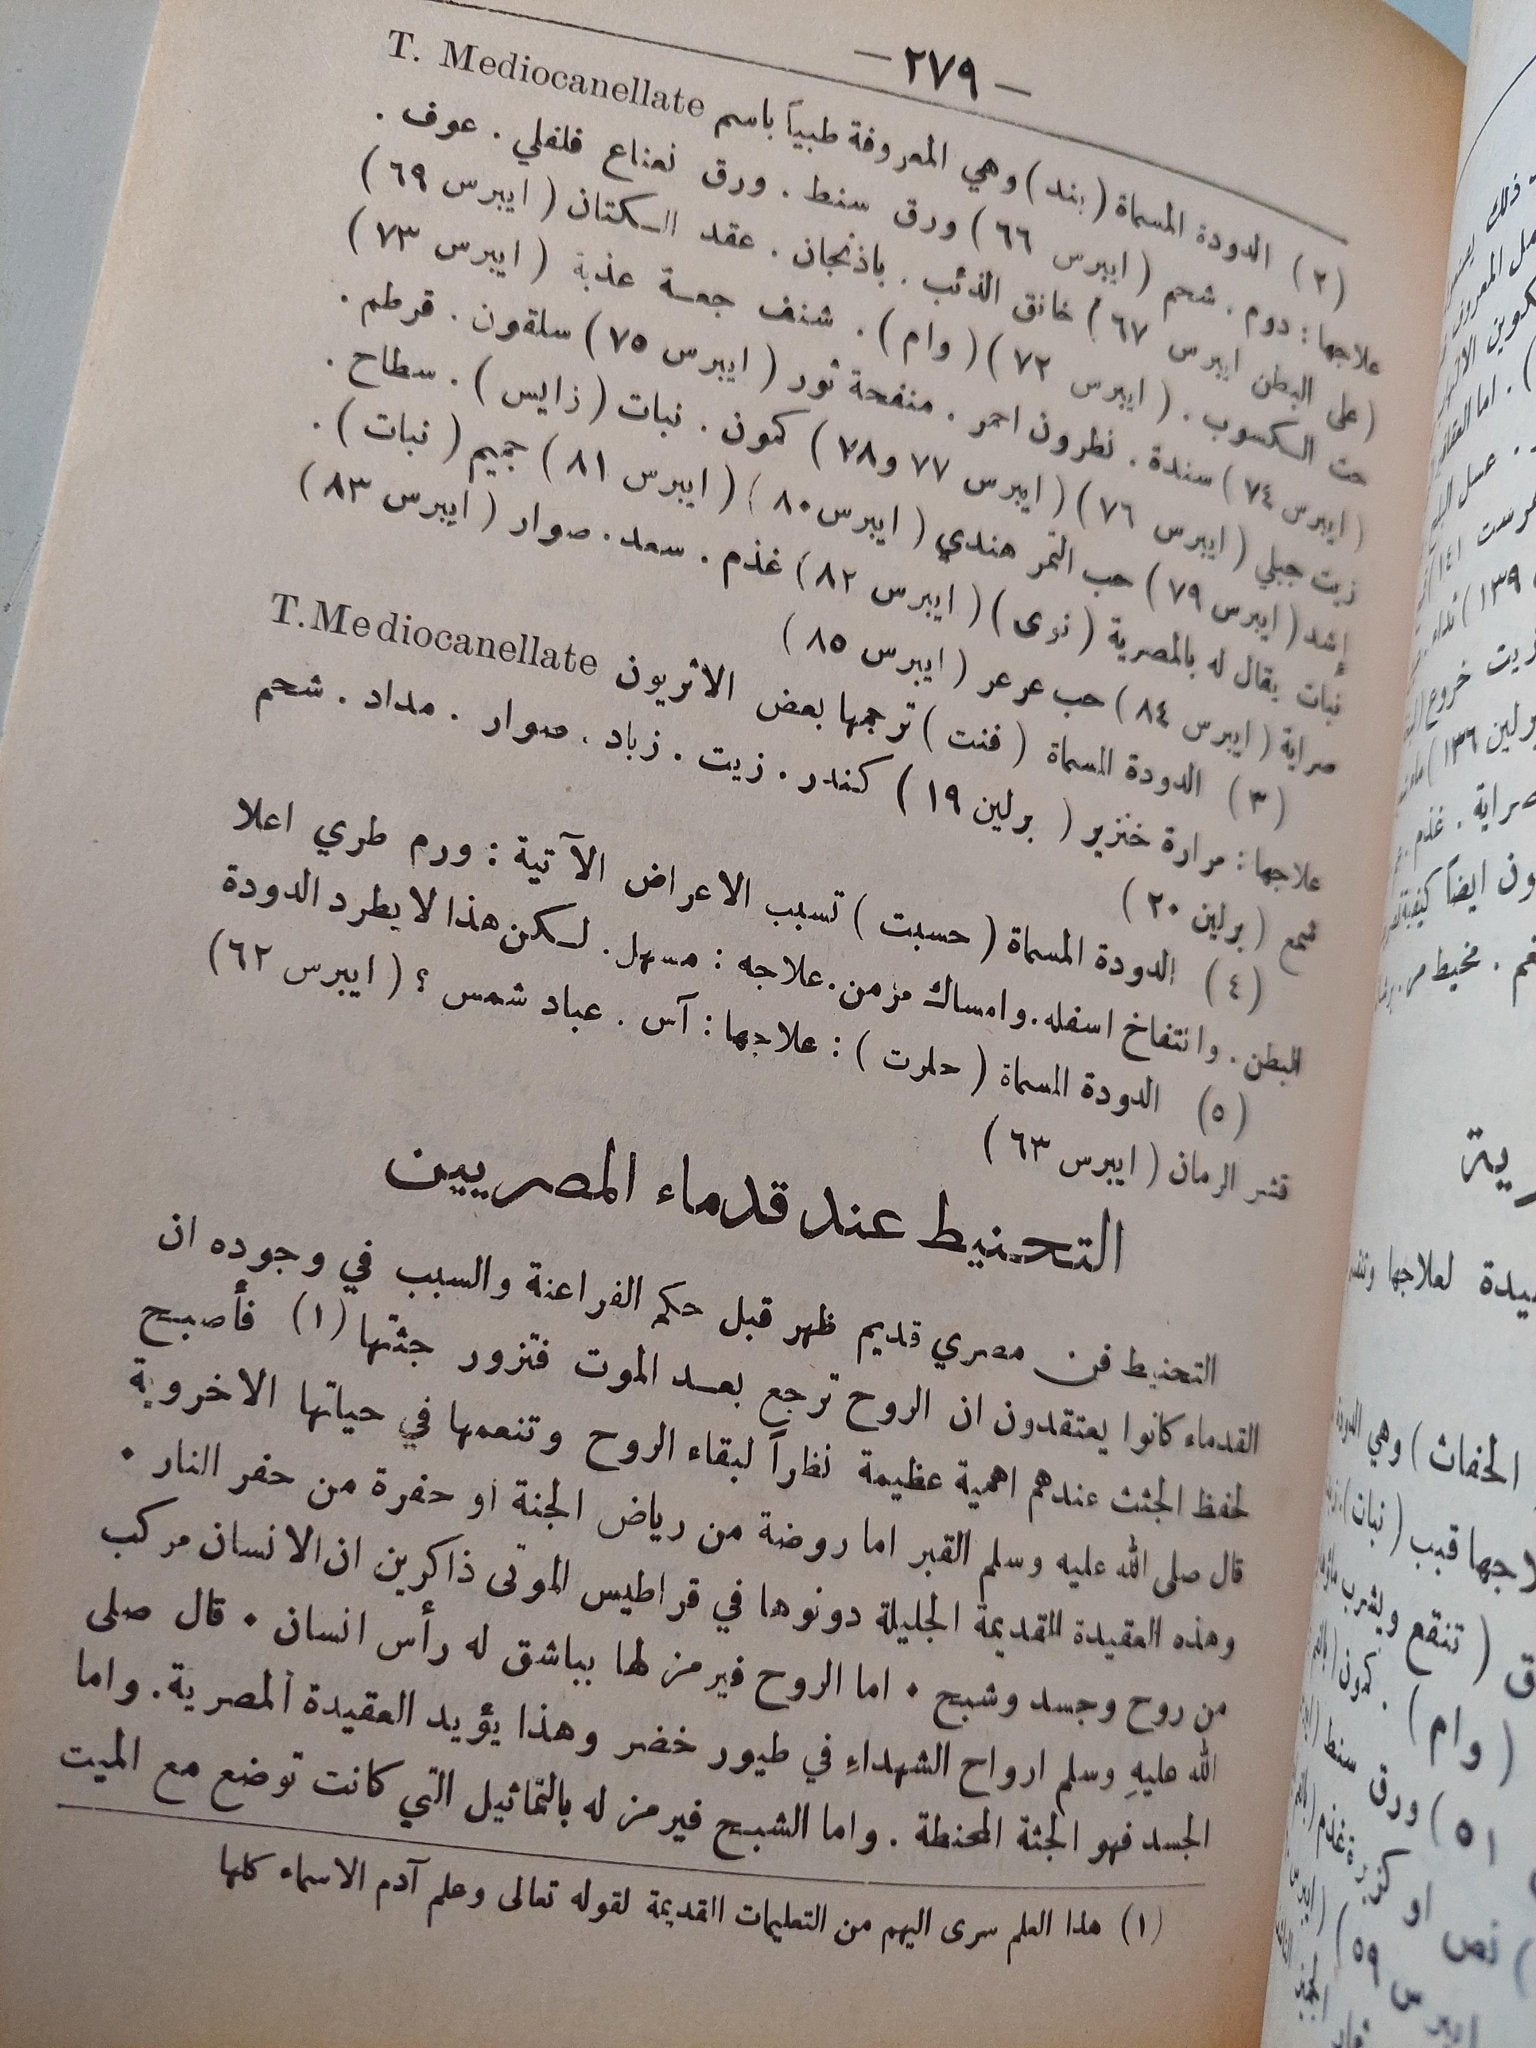 — ٢٧٩ —
(٢) الدودة المسماة ( بند ) وهي المعروفة طبياً باسم T. Mediocanellate
علاجها : دوم . شحم ( ايبرس ٦٦ ) ورق سنط . ورق نعناع فلفلي . عوف .
( على البطن ايبرس ٦٧ ) خانق الذئب . باذنجان . عقد الكتان ( ايبرس ٦٩ )
حت الكسوب . ( ايبرس ٧٢ ) ( وام ) . شنف جعة عذبة ( ايبرس ٧٣ )
( ايبرس ٧٤ ) سندة . نطرون احمر . منفحة ثور ( ايبرس ٧٥ ) سلقون . قرطم .
زيت جبلي ( ايبرس ٧٦ ) ( ايبرس ٧٧ و ٧٨ ) كمون . نبات ( زايس ) . سطاح .
إشد ( ايبرس ٧٩ ) حب التمر هندي ( ايبرس ٨٠ ) ( ايبرس ٨١ ) جميم ( نبات ) .
نبات يقال له بالمصرية ( نوى ) ( ايبرس ٨٢ ) غذم . سعد . صوار ( ايبرس ٨٣ )
صراية ( ايبرس ٨٤ ) حب عرعر ( ايبرس ٨٥ )
(٣) الدودة المسماة ( فنت ) ترجمها بعض الاثريون T.Mediocanellate
علاجها : مرارة خنزير ( برلين ١٩ ) كندر . زيت . زباد . صوار . مداد . شحم
شمع ( برلين ٢٠ )
(٤) الدودة المسماة ( حسبت ) تسبب الاعراض الآتية : ورم طري اعلا
البطن . وانتفاخ اسفله . وامساك مزمن . علاجه : مسهل . لكن هذا لا يطرد الدودة
(٥) الدودة المسماة ( حلرت ) : علاجها : آس . عباد شمس ؟ ( ايبرس ٦٢ )
قشر الرمان ( ايبرس ٦٣ )
التحنيط عند قدماء المصريين
التحنيط فن مصري قديم ظهر قبل حكم الفراعنة والسبب في وجوده ان
القدماء كانوا يعتقدون ان الروح ترجع بعد الموت فتزور جثتها (١) فأصبح
لحفظ الجثث عندهم اهمية عظيمة نظراً لبقاء الروح وتنعمها في حياتها الاخروية
قال صلى الله عليه وسلم القبر اما روضة من رياض الجنة أو حفرة من حفر النار .
وهذه العقيدة القديمة الجليلة دونوها في قراطيس الموتى ذاكرين ان الانسان مركب
من روح وجسد وشبح . اما الروح فيرمز لها بباشق له رأس انسان . قال صلى
الله عليهِ وسلم ارواح الشهداءِ في طيور خضر وهذا يؤيد العقيدة المصرية . واما
الجسد فهو الجثة المحنطة . واما الشبح فيرمز له بالتماثيل التي كانت توضع مع الميت
(١) هذا العلم سرى اليهم من التعليمات القديمة لقوله تعالى وعلم آدم الاسماء كلها